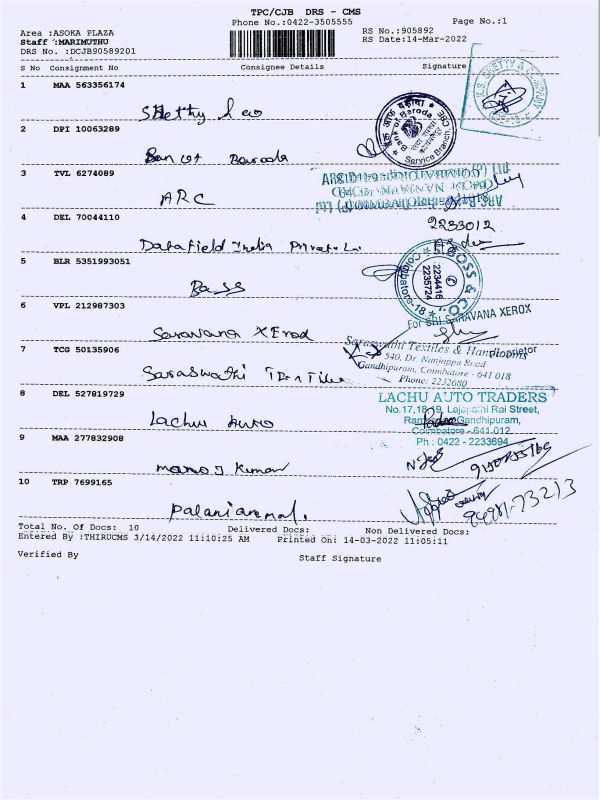 TPC/CJB DRS - CMS
Phone No.:0422-3505555 Page No.:1
Area :ASOKA PLAZA RS No.:905892
Staff :MARIMUTHU RS Date:14-Mar-2022
DRS No. :DCJB90589201
S No Consignment No Consignee Details Signature
1 MAA 563356174
Shetty & co
2 DPI 10063289
Ban of Baroda
Bank of Baroda
Service Branch, CBE
3 TVL 6274089
ARC
4 DEL 70044110
2233012
Datafield India Private
5 BLR 5351993051
BOSS & CO
2234416
2235724
Coimbatore-18
Boss
6 VPL 212987303
For SRI SARAVANA XEROX
Saravana XErod
Proprietor
7 TCG 50135906
Saraswathi Textiles & Handlooms
540, Dr. Nanjappa Road
Gandhipuram, Coimbatore - 641 018
Phone: 2232680
Saraswathi
8 DEL 527819729
LACHU AUTO TRADERS
No.17,18,19, Lajapathi Rai Street,
Ram Gandhipuram,
Coimbatore - 641 012
Ph : 0422 - 2233694
Lachu Auto
9 MAA 277832908
Manoj Kumar
10 TRP 7699165
Palaniammal.
Total No. Of Docs: 10 Delivered Docs: Non Delivered Docs:
Entered By :THIRUCMS 3/14/2022 11:10:25 AM Printed On: 14-03-2022 11:05:11
Verified By Staff Signature